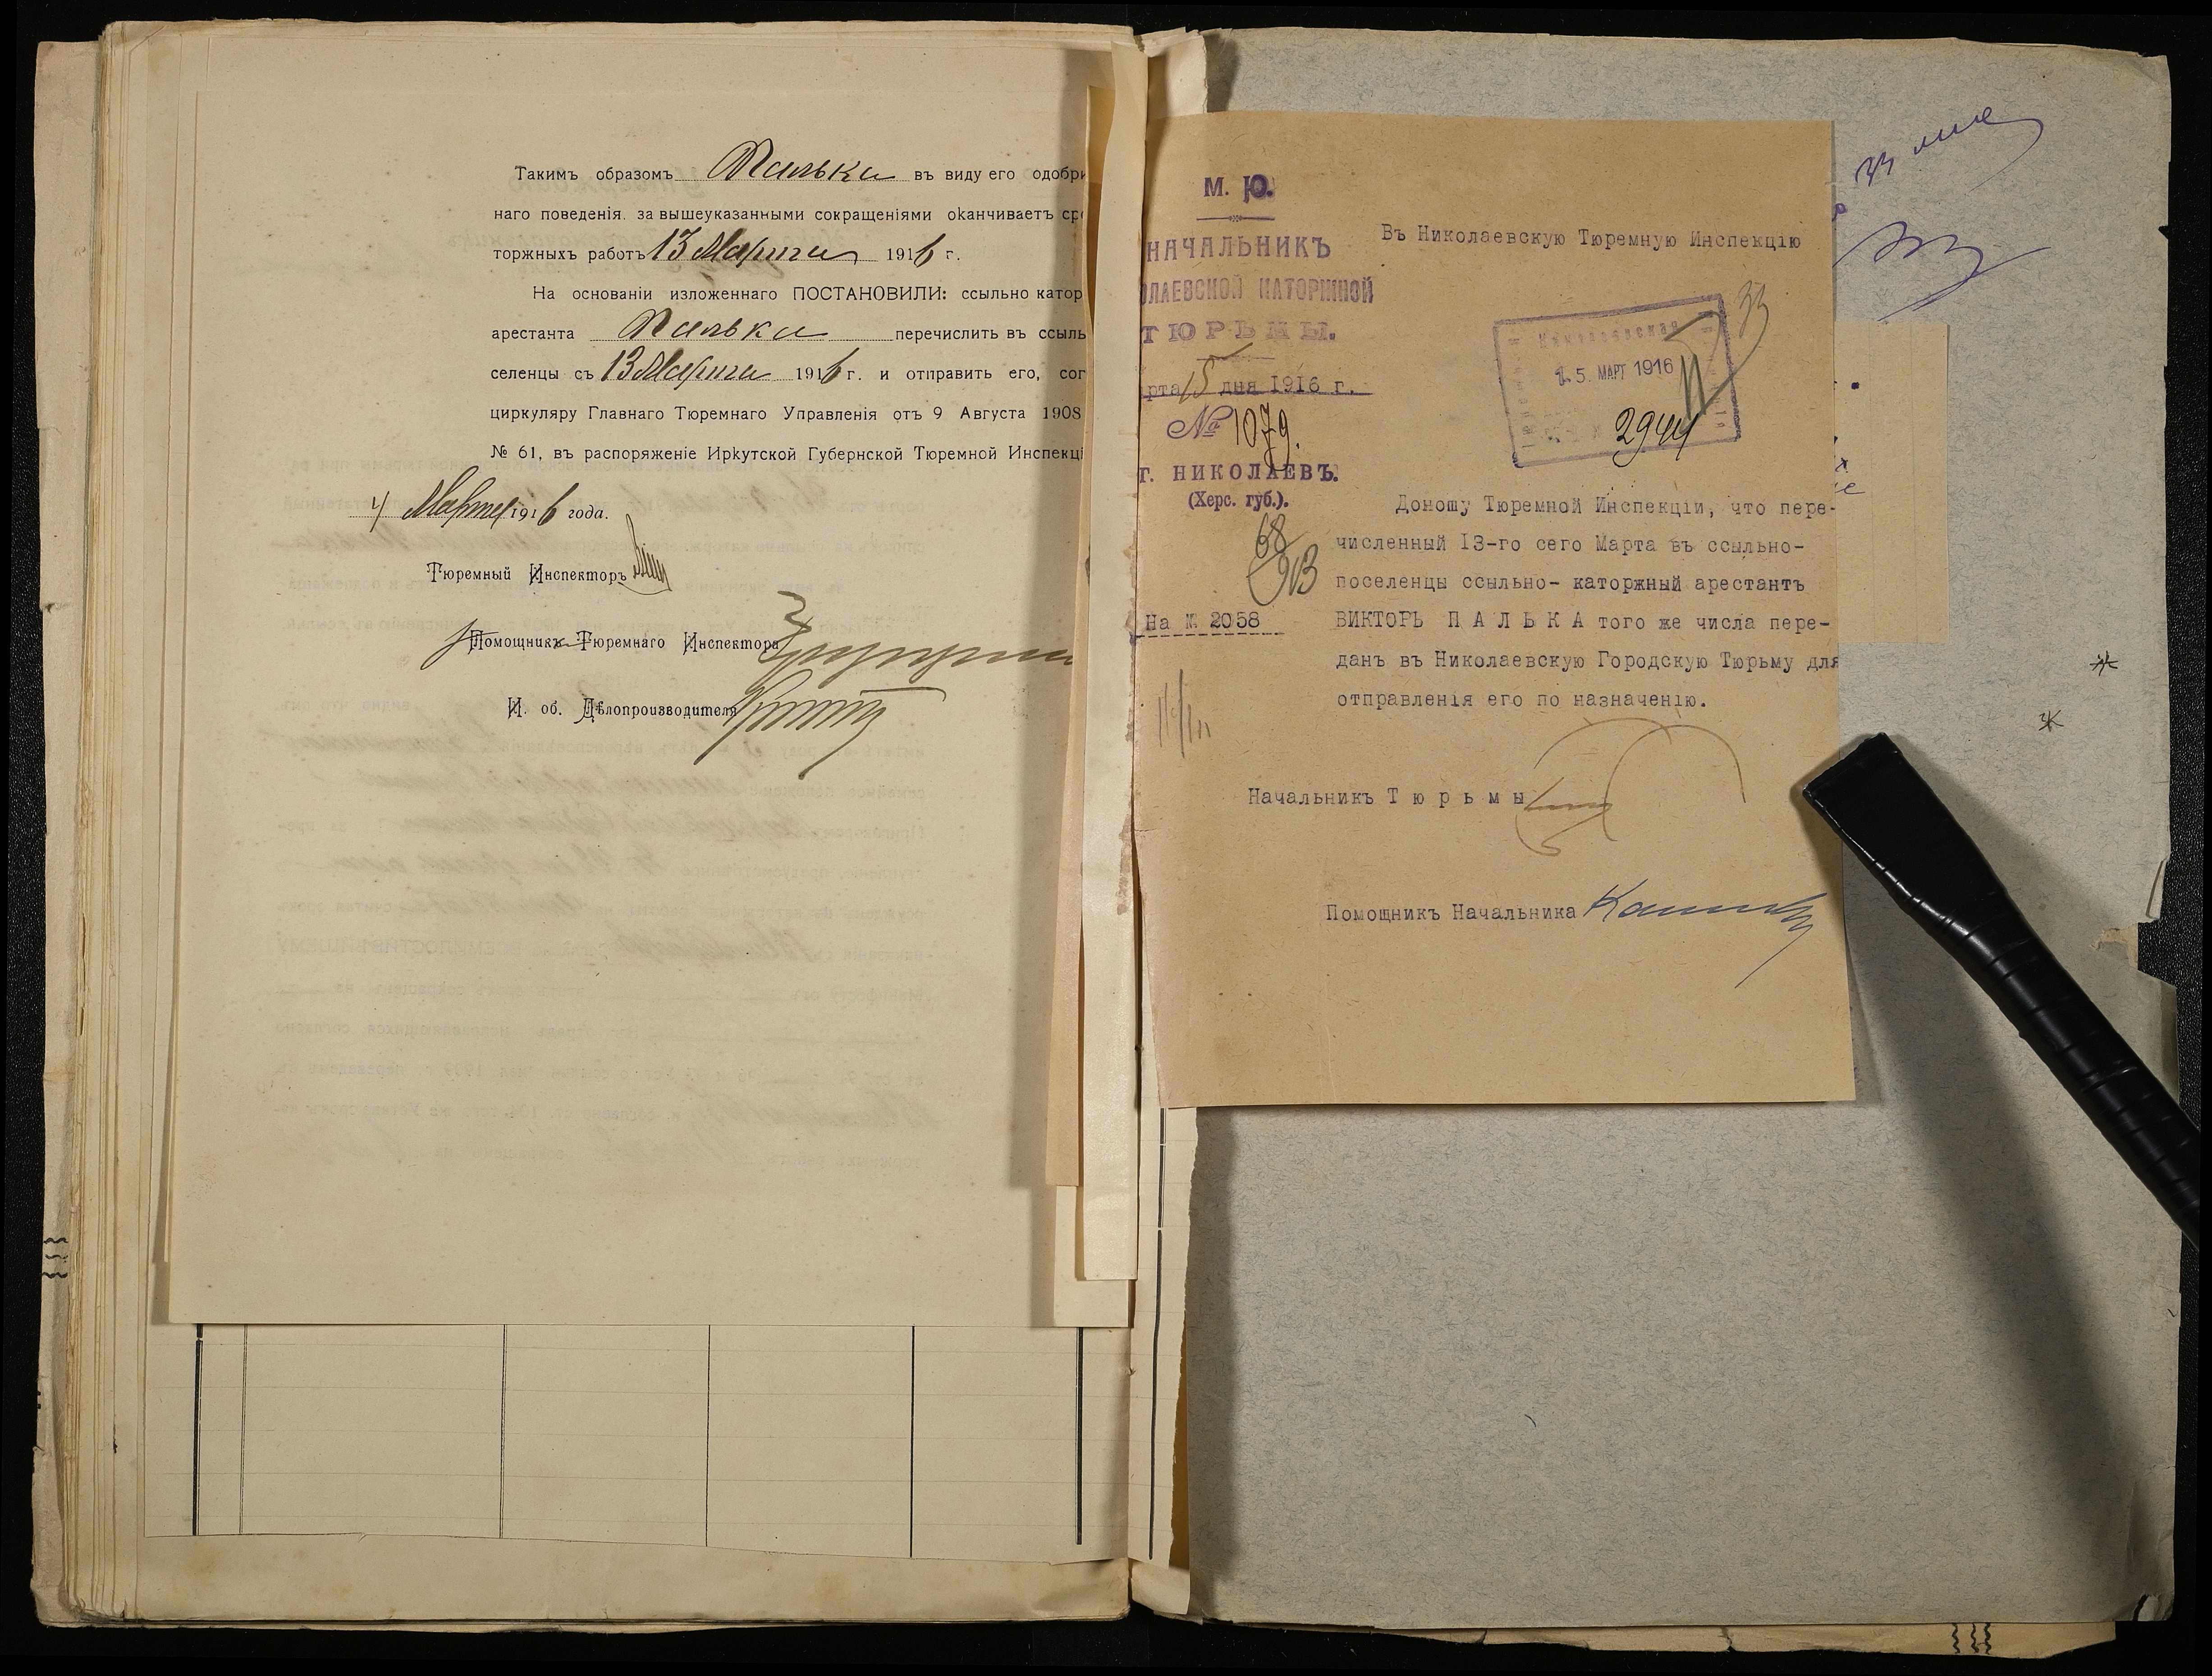 Такимъ образомъ Палька въ виду его одобри
наго поведенія, за вышеуказанными сокращеніями оканчиваетъ ср
торжныхъ работъ 13 Марта 1916 г.
На основаніи изложеннаго ПОСТАНОВИЛИ: ссыльно катор
арестанта Палька перечислить въ ссыль
селенцы съ 13 Марта 1916 г. и отправить его, сог
циркуляру Главнаго Тюремнаго Управленія отъ 9 Августа 1908
№ 61, въ распоряженіе Иркутской Губернской Тюремной Инспекці
4 Марта 1916 года.
Тюремный Инспекторъ
Помощникъ Тюремнаго Инспектора
И. об. Дѣлопроизводителя
М. Ю.
НАЧАЛЬНИКЪ
ОЛАЕВСКОЙ КАТОРЖНОЙ
ТЮРЬМЫ.
рта 15 дня 1916 г.
№ 1079.
Г. НИКОЛАЕВЪ.
(Херс. губ.).
68
913
На № 2058
Въ Николаевскую Тюремную Инспекцію
33
Николаевская
15 МАРТ 1916
2944
Доношу Тюремной Инспекціи, что пере-
численный 13-го сего Марта въ ссыльно-
поселенцы ссыльно- каторжный арестантъ
ВИКТОРЪ ПАЛЬКА того же числа пере-
данъ въ Николаевскую Городскую Тюрьму для
отправленія его по назначенію.
Начальникъ Тюрьмы
Помощникъ Начальника